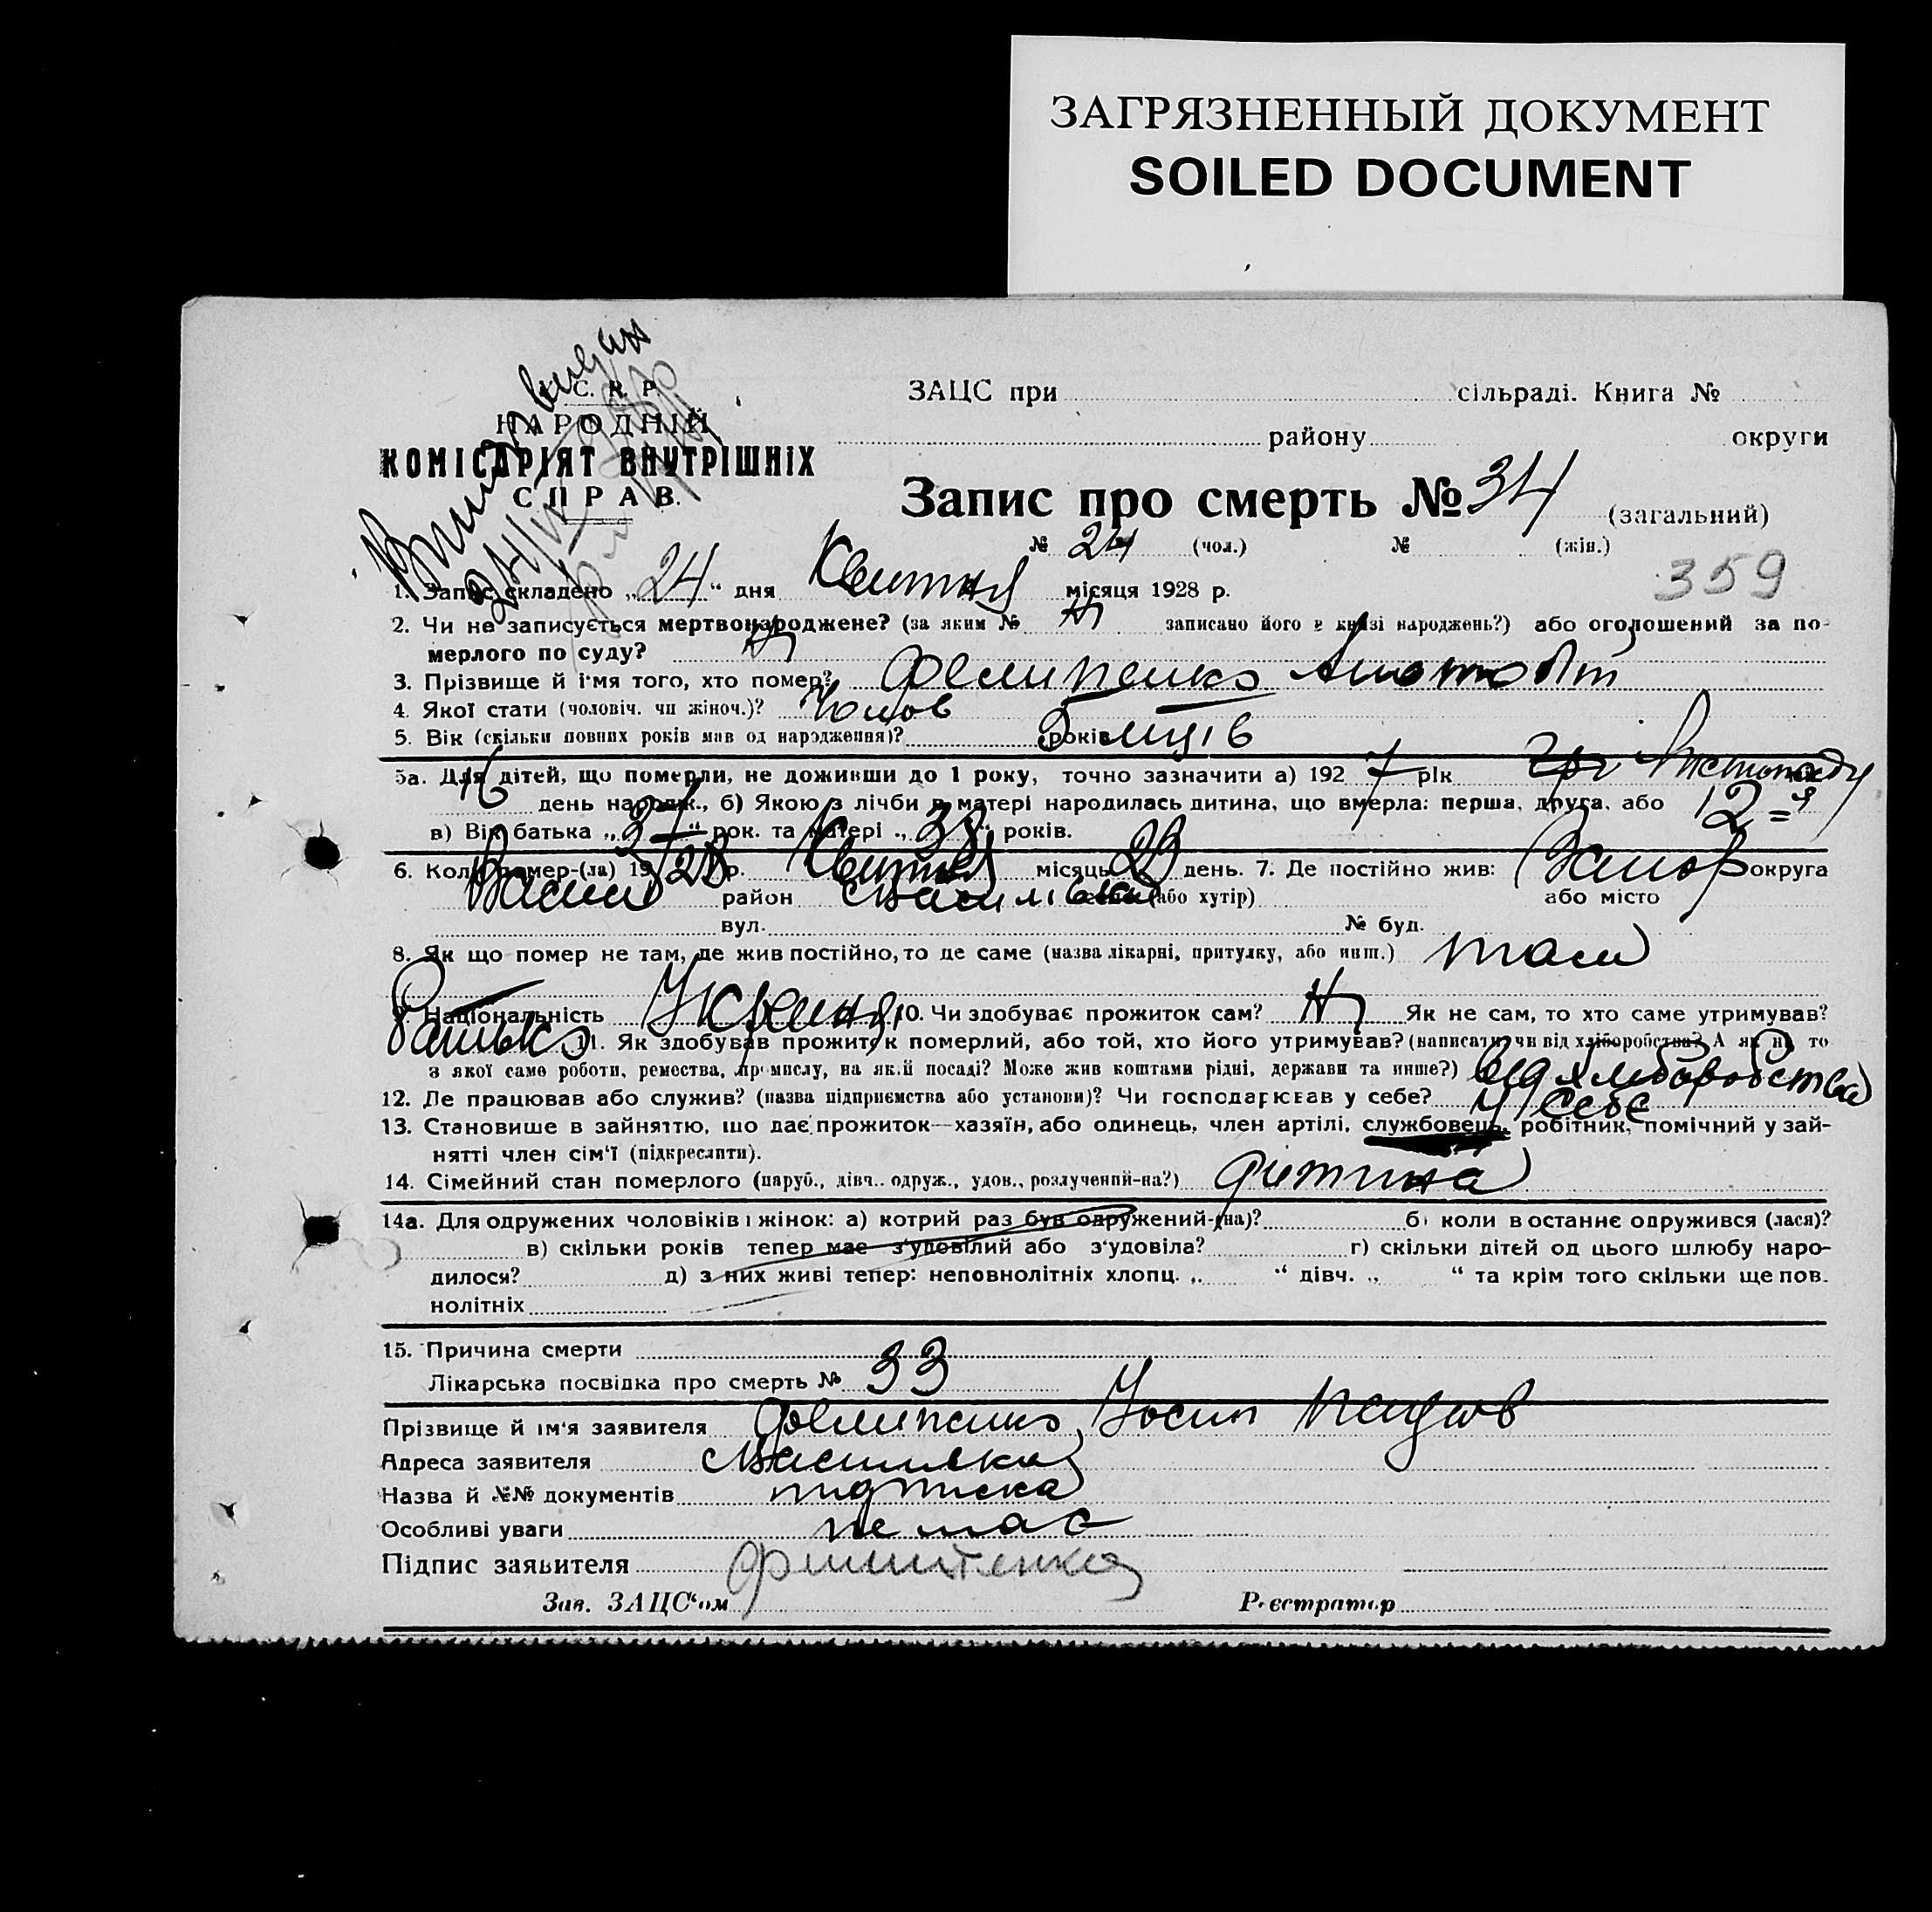 ЗАГРЯЗНЕННЫЙ ДОКУМЕНТ
SOILED DOCUMENT
НАРОДНІЙ
КОМІСАРІЯТ ВНУТРІШНІХ
СПРАВ.
ЗАЦС при сільраді. Книга №
району округи
Запис про смерть № 34 (загальний)
№ 24 (чол.) № (жін.)
359
1. Запис складено „24“ дня Квитня місяця 1928 р.
2. Чи не записується мертвонароджене? (за яким № Ні записано його в книзі народжень?) або оголошений за по-
мерлого по суду? Ні
3. Прізвище й ім'я того, хто помер?
4. Якої стати (чоловіч. чи жіноч.)? Чолов
5. Вік (скільки повних років мав од народження)? 5 років місців
5а. Для дітей, що померли, не доживши до 1 року, точно зазначити а) 1927 рік Листопаду
16 день народж., б) Якою з лічби в матері народилась дитина, що вмерла: перша, друга, або 12=я
в) Вік батька „37“ рок. та матері „38“ років.
6. Коли помер-(ла) 1928 р. Квитня місяць 23 день. 7. Де постійно жив: Запор округа
Васил район с Василівка (або хутір) або місто
вул. № буд.
8. Як що помер не там, де жив постійно, то де саме (назва лікарні, притулку, або инш.) там
9. Національність 10. Чи здобуває прожиток сам? Ні Як не сам, то хто саме утримував?
Батько 11. Як здобував прожиток померлий, або той, хто його утримував? (написати чи від хліборобства? А як ні, то
з якої само роботи, ремества, промислу, на якій посаді? Може жив коштами рідні, держави та инше?) від хліборобства
12. Де працював або служив? (назва підприємства або установи)? Чи господарював у себе? У себе
13. Становише в зайняттю, що дає прожиток—хазяїн, або одинець, член артілі, службовець, робітник, помічний у зай-
нятті член сім'ї (підкреслити).
14. Сімейний стан померлого (паруб., дівч.. одруж., удов., розлучений-на?) дитина
14а. Для одружених чоловіків і жінок: а) котрий раз був одружений-(на)? б) коли востаннє одружився (лася)?
в) скільки років тепер має з'удовілий або з'удовіла? г) скільки дітей од цього шлюбу наро-
дилося? д) з них живі тепер: неповнолітніх хлопц. „ “ дівч. „ “ та крім того скільки ще пов.
нолітніх
15. Причина смерти
Лікарська посвідка про смерть № 33
Прізвище й ім'я заявителя Филипенко Йосип
Адреса заявителя с Василівка
Назва й №№ документів підписка
Особливі уваги немає
Підпис заявителя Филипенко
Зав. ЗАЦС'ом Реєстратор